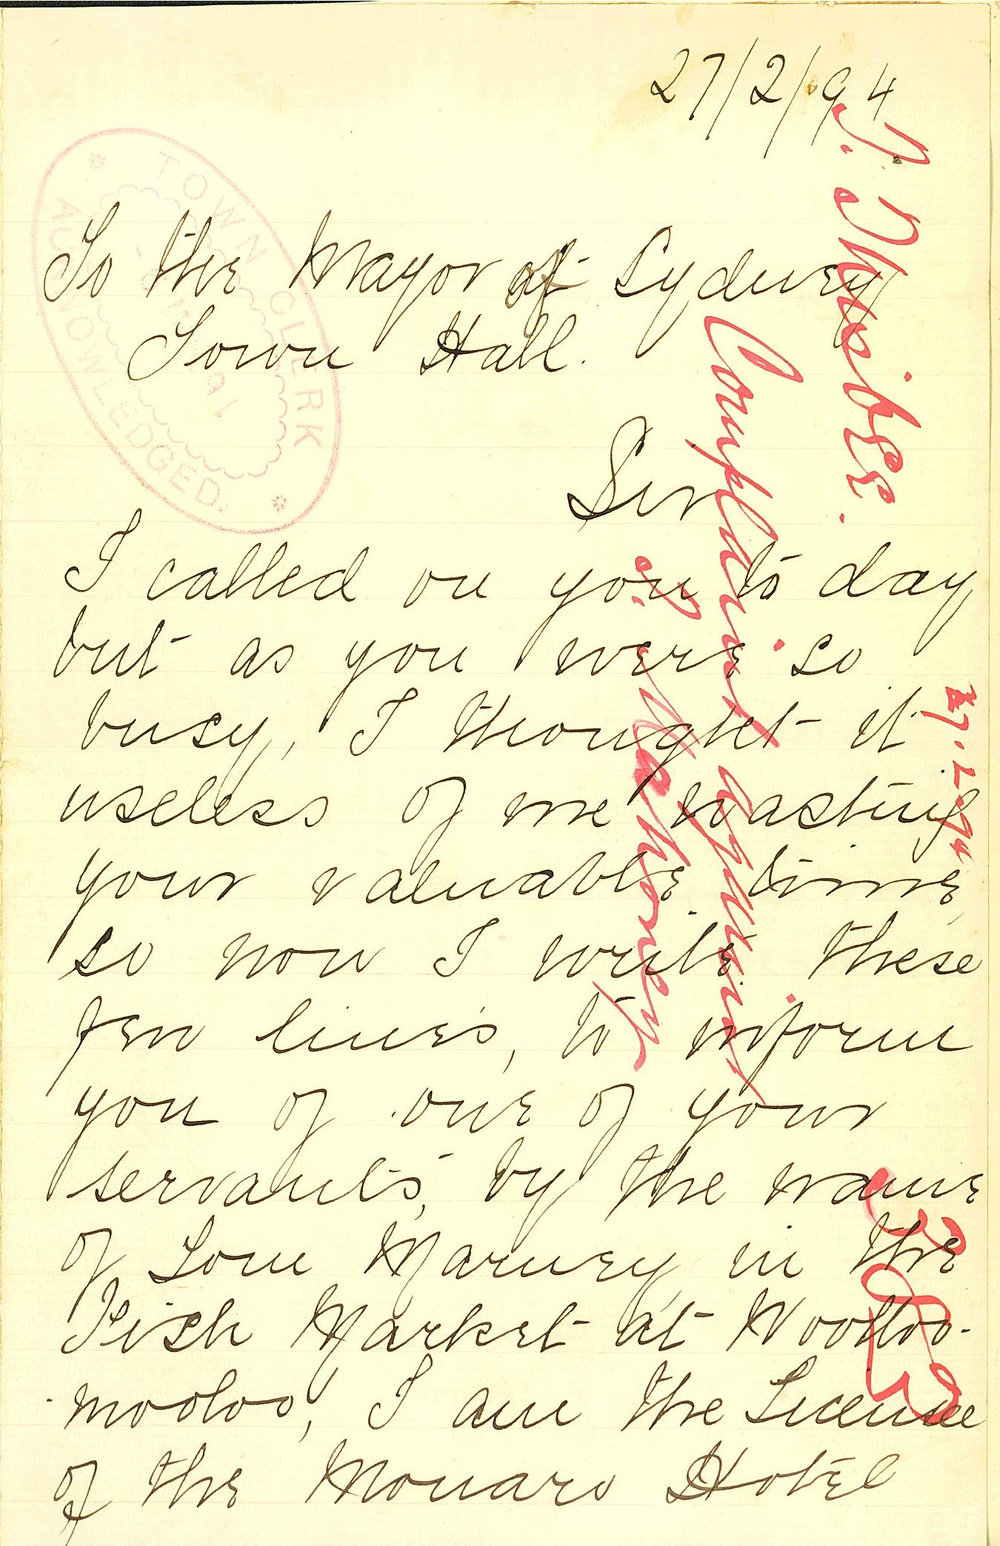 27/2/94
To the Mayor of Sydney
Town Hall.
Sir
I called on you to day
but as you were so
busy, I thought it
useless of me wasting
your valuable time,
so now I write these
few lines, to inform
you of one of your
servants, by the name
of Tom Marney in the
Fish Market at Woolloo-
mooloo, I am the Licensee
of the Monaro Hotel
TOWN CLERK
ACKNOWLEDGED.
Complaint against
Mahoney
27.2.94